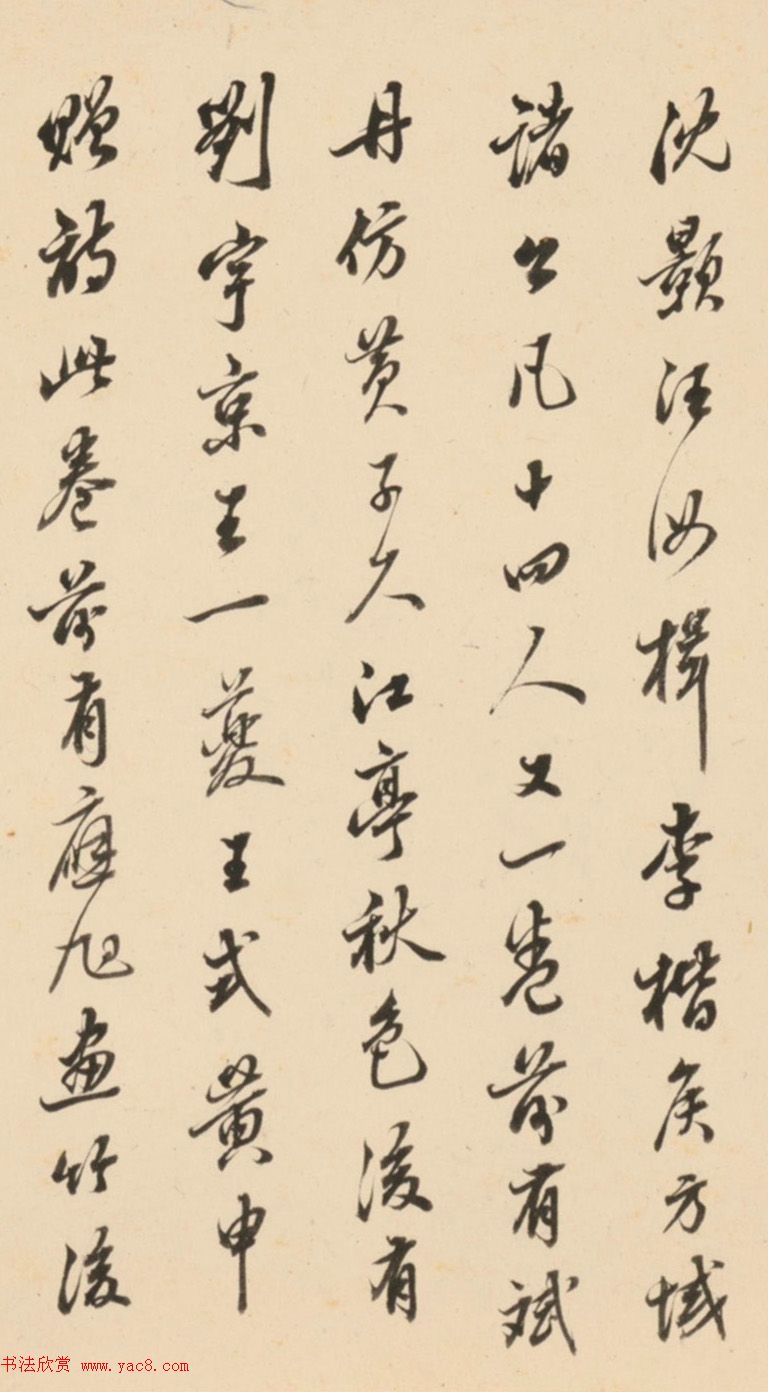 沈顥汪汝楫李楷矦方域
諸公凡十四人又一卷前有斌
丹仿黃子久江亭秋色後有
劉字京王一夔王式黄申
贈詩此卷前有應旭畫竹後
书法欣赏 www.yac8.com